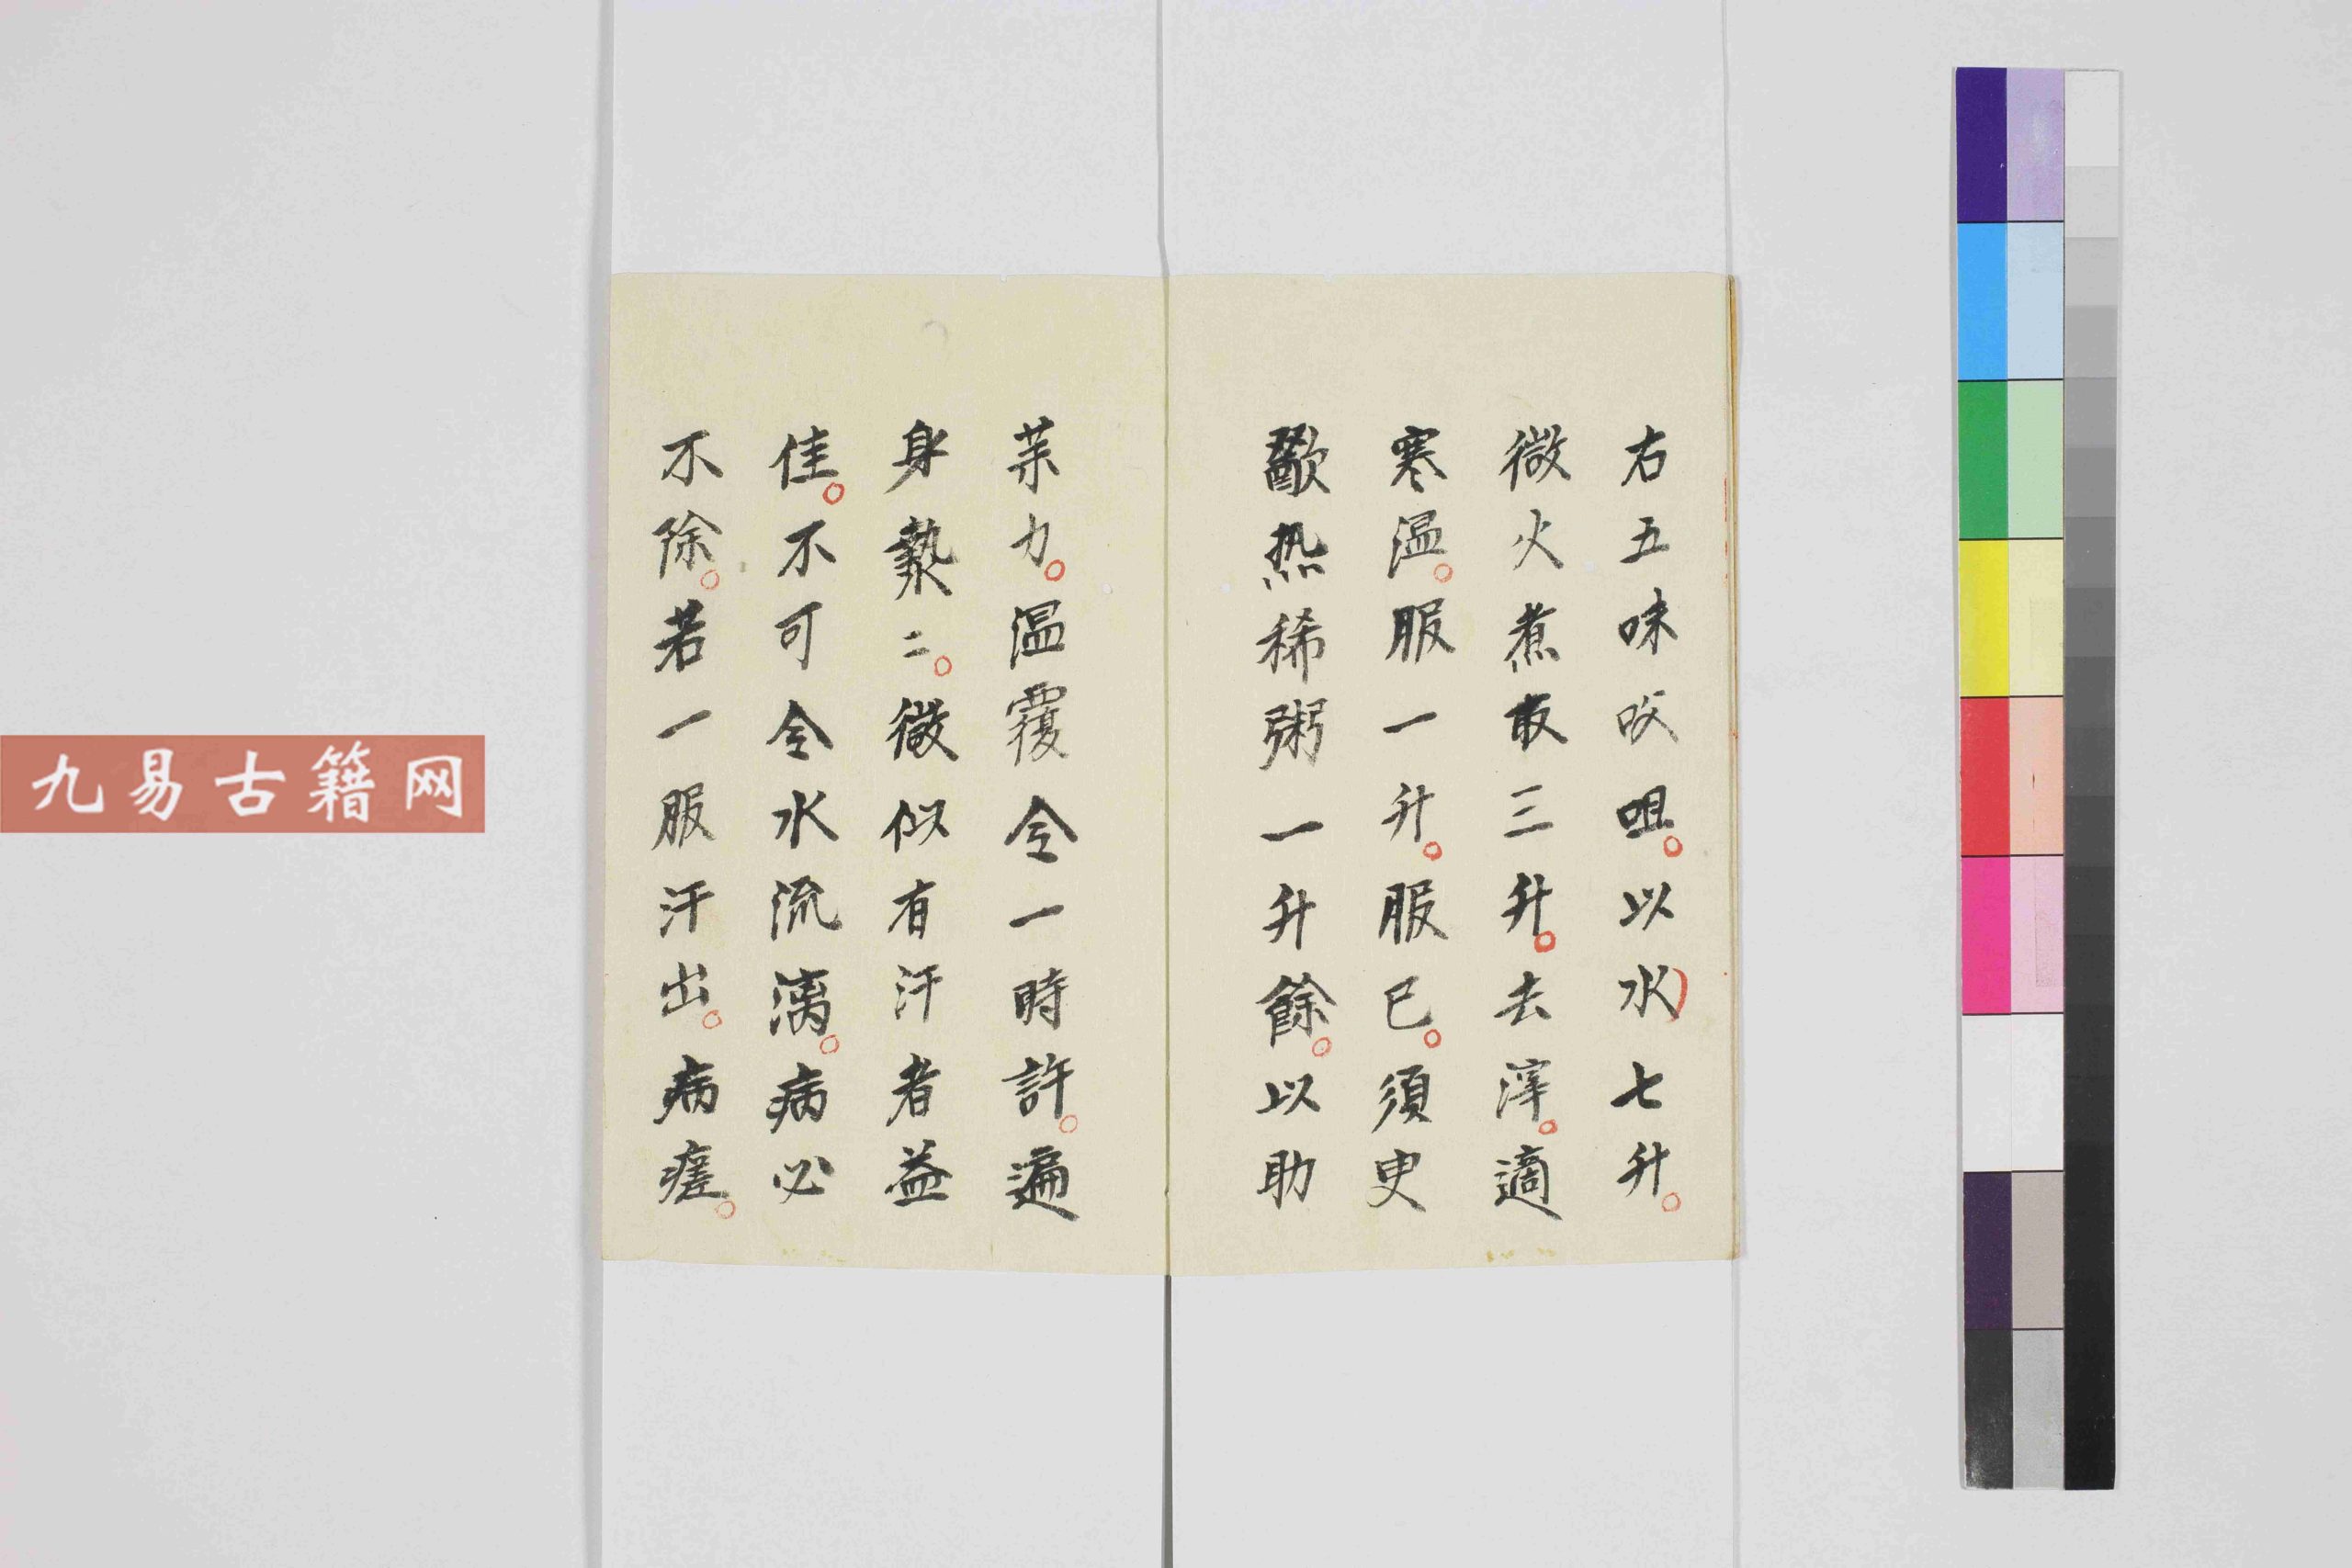 右五味㕮咀。以水七升。
微火煮取三升。去滓。適
寒温。服一升。服已。須臾
歠热稀粥一升餘。以助
藥力。温覆令一時許。遍
身漐〻。微似有汗者益
佳。不可令水流漓。病必
不除。若一服汗出。病瘥。
九易古籍网